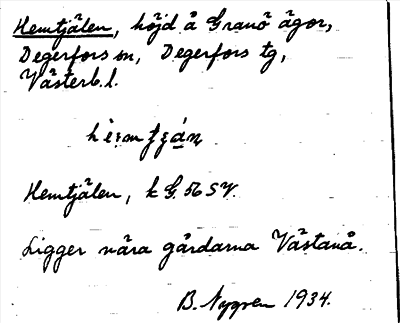 Hemtjälen, höjd å Granö ägor,
Degerfors sn, Degerfors tg,
Västerb. l.
Hemtjälen, k G.
Ligger nära gårdarna Västanå.
B. Nygren 1934.